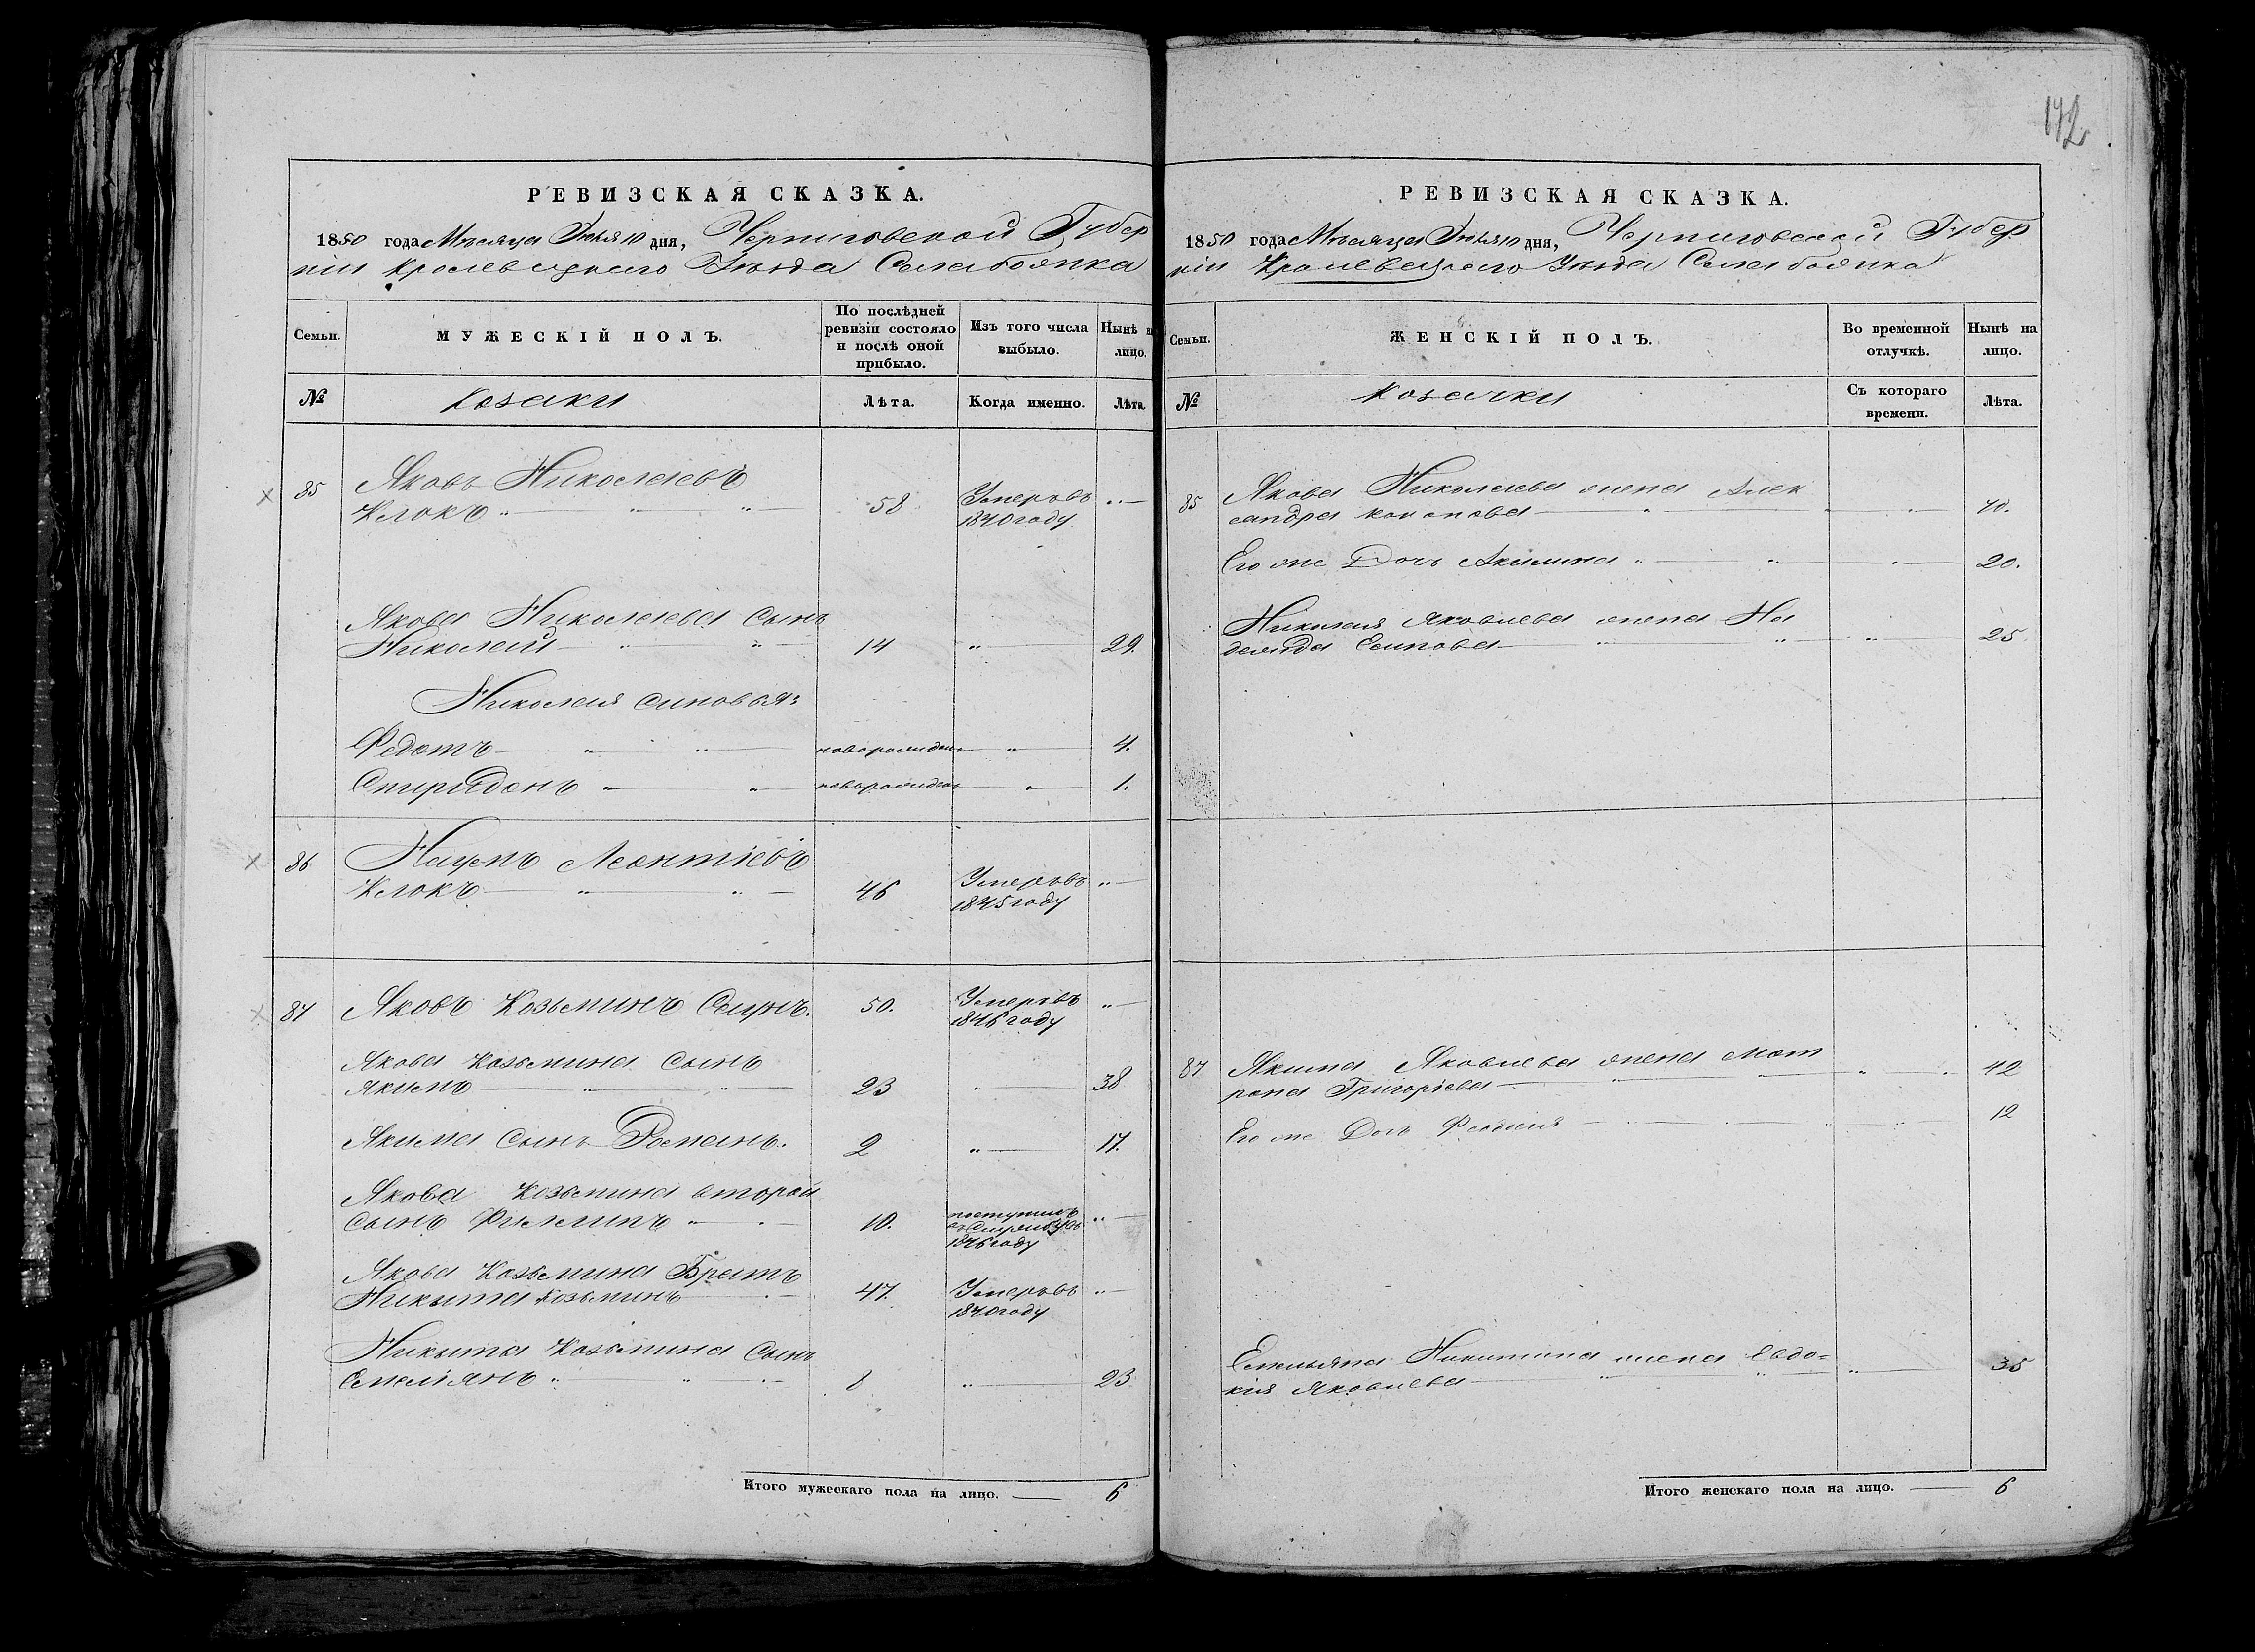 172
РЕВИЗСКАЯ СКАЗКА.
1850 года Мѣсяца Іюля 10 дня, Черниговской Губер
ніи Кролевецкаго Уѣзда Села боянка
Семьи.
МУЖЕСКІЙ ПОЛЪ.
По послѣдней
ревизіи состояло
и послѣ оной
прибыло.
Изъ того числа
выбыло.
Нынѣ на
лицо.
№
Козаки
Лѣта.
Когда именно.
Лѣта.
85 Яковъ Николаевъ
Клокъ 58 Умеръ въ
1840 году
Якова Николаева Сынъ
Николай 14 29.
Николая синовья:
Федотъ новорожден 4.
Спиридонъ новорожден 1.
86 Наумъ Леонтіевъ
Клокъ 46 Умеръ въ
1845 году
87 Яковъ Козьминъ 50. Умеръ въ
1846 году
Якова Козьмина Сынъ
Якимъ 23 38
Якима Сынъ Романъ. 2 17.
Якова Козьмина второй
Сынъ Филипъ 10. поступилъ
1846 году
Якова Козьмина Братъ
Никита Козьминъ 47. Умеръ въ
1840 году
Никиты Козьмина Сынъ
Емеліянъ 8 23
Итого мужескаго пола на лицо. 6
РЕВИЗСКАЯ СКАЗКА.
1850 года Мѣсяца Іюля 10 дня, Черниговской Губер
ніи Кролевецкаго Уѣзда Села боянка
Семьи.
ЖЕНСКІЙ ПОЛЪ.
Во временной
отлучкѣ.
Нынѣ на
лицо.
№
Козачки
Съ котораго
времени.
Лѣта.
85 Якова Николаева жена Алек
сандра Кононова 70.
Его же Дочь Акилина 20.
Николая Яковлева жена На
Есипова 25
87 Якима Яковлева жена Мат
рона Григорьева 42
Его же Дочь 12
Емельяна Никитина жена Евдо=
кія Яковлева 35
Итого женскаго пола на лицо. 6